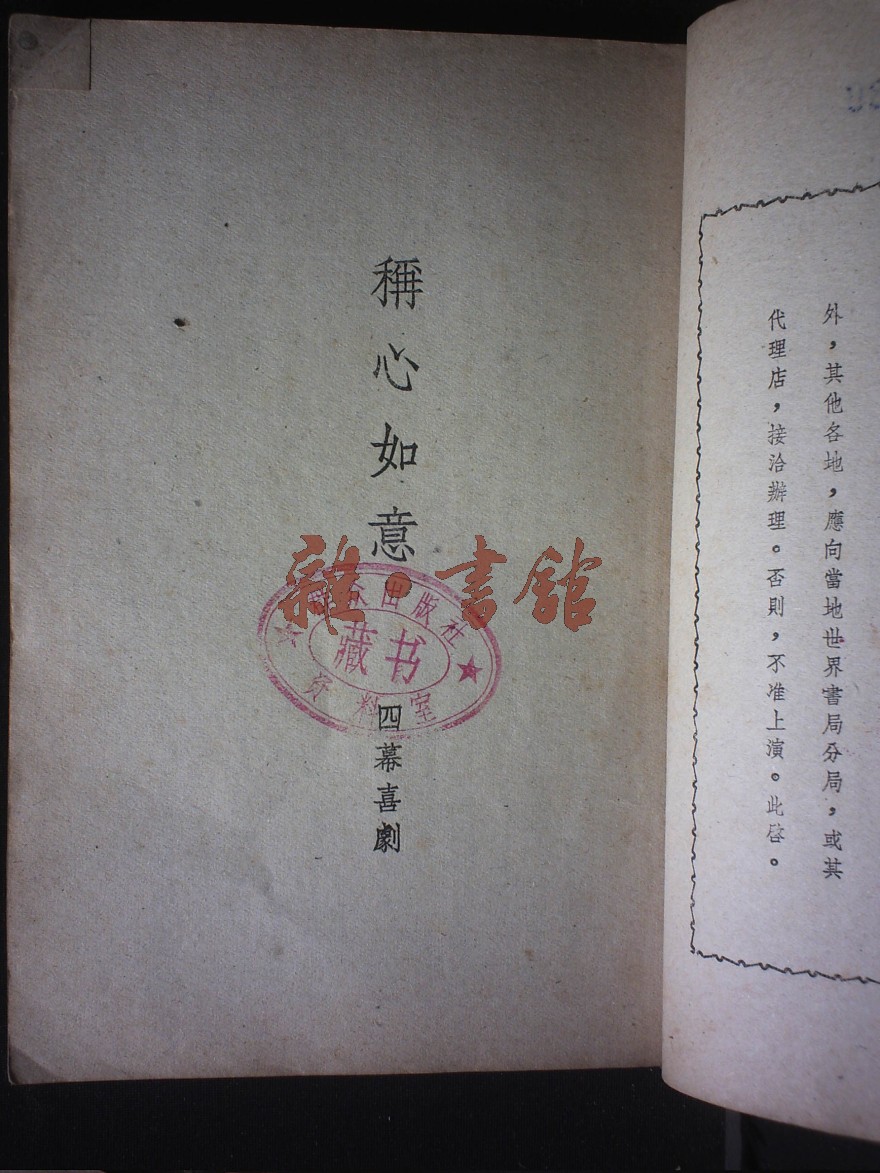 稱心如意
四幕喜劇
雜·書館
出版社
藏书
资料室
外，其他各地，應向當地世界書局分局，或其
代理店，接洽辦理。否則，不准上演。此啓。